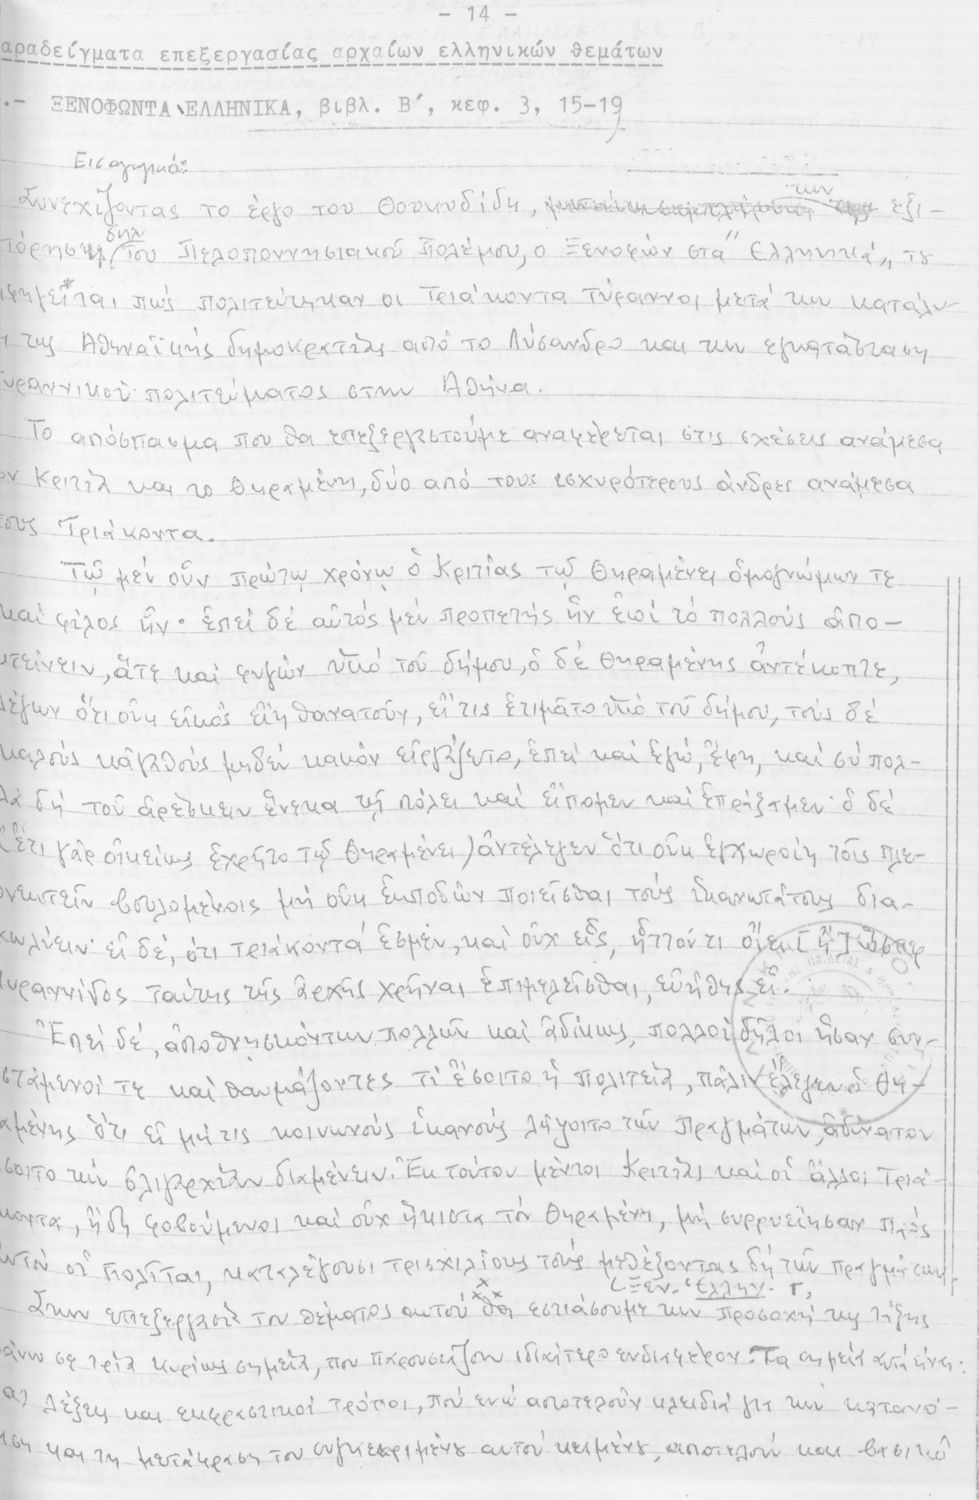 - 14 -
αραδείγματα επεξεργασίας αρχαίων ελληνικών θεμάτων
.- ΞΕΝΟΦΩΝΤΑ, ΕΛΛΗΝΙΚΑ, βιβλ. Β', κεφ. 3, 15-19
Εισαγωγικά:
Συνεχίζοντας το έργο του Θουκυδίδη, την εξι-
στόρηση δηλ. του Πελοποννησιακού Πολέμου, ο Ξενοφών στα "Ελληνικά" του
ιφηγείται πώς πολιτεύτηκαν οι Τριάκοντα Τύραννοι μετά την κατάλυ-
η της Αθηναϊκής δημοκρατίας από το Λύσανδρο και την εγκατάσταση
υραννικού πολιτεύματος στην Αθήνα.
Το απόσπασμα που θα επεξεργαστούμε αναφέρεται στις σχέσεις ανάμεσα
ον Κριτία και το Θηραμένη, δύο από τους ισχυρότερους άνδρες ανάμεσα
τους Τριάκοντα.
Τῷ μέν οὖν πρώτῳ χρόνῳ ὁ Κριτίας τῷ Θηραμένει ὁμογνώμων τε
καί φίλος ἦν· ἐπεί δέ αὐτός μέν προπετής ἦν ἐπί τό πολλούς ἀπο-
κτείνειν, ἅτε καί φυγών ὑπό τοῦ δήμου, ὁ δέ Θηραμένης ἀντέκοπτε,
λέγων ὅτι οὐκ εἰκός εἴη θανατοῦν, εἴ τις ἐτιμᾶτο ὑπό τοῦ δήμου, τούς δέ
καλούς κἀγαθούς μηδέν κακόν εἰργάζετο, ἐπεί καί ἐγώ, ἔφη, καί σύ πολ-
λά δή τοῦ ἀρέσκειν ἕνεκα τῇ πόλει καί εἴπομεν καί ἐπράξαμεν· ὁ δέ
(ἔτι γάρ οἰκείως ἐχρῆτο τῷ Θηραμένει) ἀντέλεγεν ὅτι οὐκ ἐγχωροίη τοῖς πλε-
ονεκτεῖν βουλομένοις μή οὐκ ἐκποδών ποιεῖσθαι τούς ἱκανωτάτους δια-
κωλύειν· εἰ δέ, ὅτι τριάκοντά ἐσμεν, καί οὐχ εἷς, ἧττόν τι οἴει [ἤ] ὥσπερ
τυραννίδος ταύτης τῆς ἀρχῆς χρῆναι ἐπιμελεῖσθαι, εὐήθης εἶ.
Ἐπεί δέ, ἀποθνησκόντων πολλῶν καί ἀδίκως, πολλοί δῆλοι ἦσαν συν-
στάμενοί τε καί θαυμάζοντες τί ἔσοιτο ἡ πολιτεία, πάλιν ἔλεγεν ὁ Θη-
αμένης ὅτι εἰ μή τις κοινωνούς ἱκανούς λήψοιτο τῶν πραγμάτων, ἀδύνατον
σοιτο τήν ὀλιγαρχίαν διαμένειν. Ἐκ τούτου μέντοι Κριτίας καί οἱ ἄλλοι Τριά-
κοντα, ἤδη φοβούμενοι καί οὐχ ἥκιστα τόν Θηραμένη, μή συρρυείησαν πρός
αὐτόν οἱ πολῖται, καταλέγουσι τρισχιλίους τούς μεθέξοντας δή τῶν πραγμάτων
(Ξεν. Ἑλλην. Γ,
Στην επεξεργασία του θέματος αυτού θα εστιάσουμε την προσοχή της τάξης
πάνω σε τρία κυρίως σημεία, που παρουσιάζουν ιδιαίτερο ενδιαφέρον. Τα σημεία αυτά είναι:
α) Λέξεις και εκφραστικοί τρόποι, πού ενώ αποτελούν κλειδιά για την κατανό-
ηση και τη μετάφραση του συγκεκριμένου αυτού κειμένου, αποτελούν και βασικό